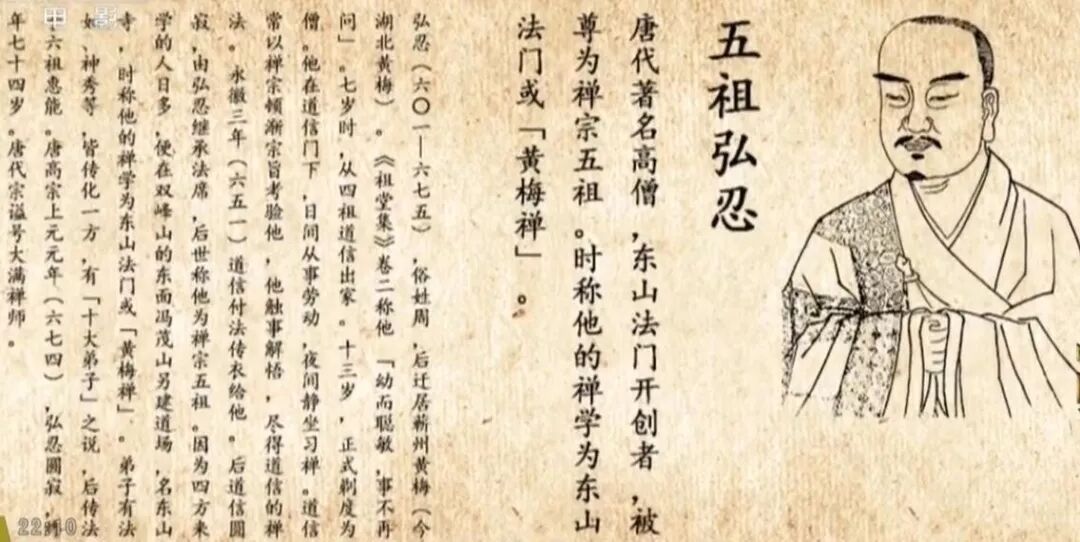 五祖弘忍
唐代著名高僧，东山法门开创者，被
尊为禅宗五祖。时称他的禅学为东山
法门或「黄梅禅」。
弘忍（六〇一—六七五），俗姓周，后迁居蕲州黄梅（今
湖北黄梅）。《祖堂集》卷二称他「幼而聪敏，事不再
问」。七岁时，从四祖道信出家。十三岁，正式剃度为
僧。他在道信门下，日间从事劳动，夜间静坐习禅。道信
常以禅宗顿渐宗旨考验他，他触事解悟，尽得道信的禅
法。永徽三年（六五一）道信付法传衣给他。后道信圆
寂，由弘忍继承法席，后世称他为禅宗五祖。因为四方来
学的人日多，便在双峰山的东面冯茂山另建道场，名东山
寺，时称他的禅学为东山法门或「黄梅禅」。弟子有法
如、神秀等，皆传化一方，有「十大弟子」之说，后传法
六祖惠能。唐高宗上元元年（六七四），弘忍圆寂，
年七十四岁。唐代宗谥号大满禅师。
电影
22:10